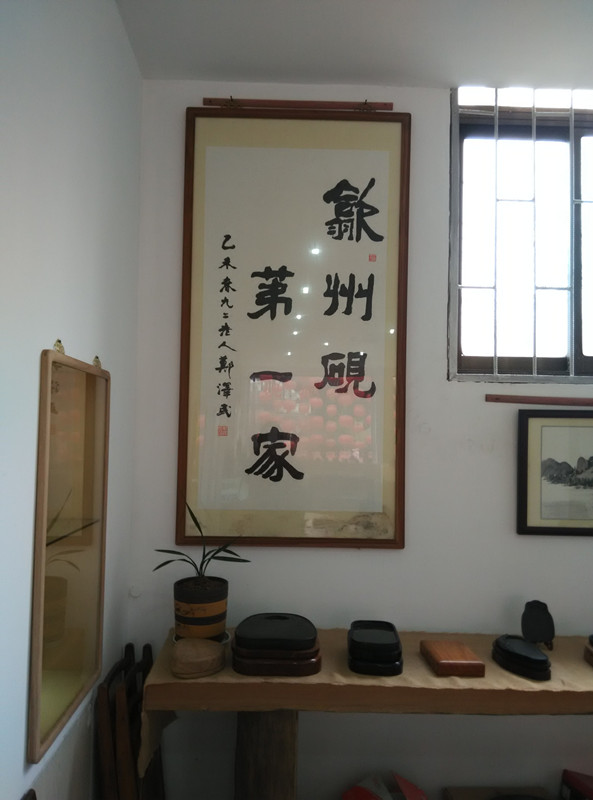 歙州硯
第一家
乙未春九二老人鄭澤武